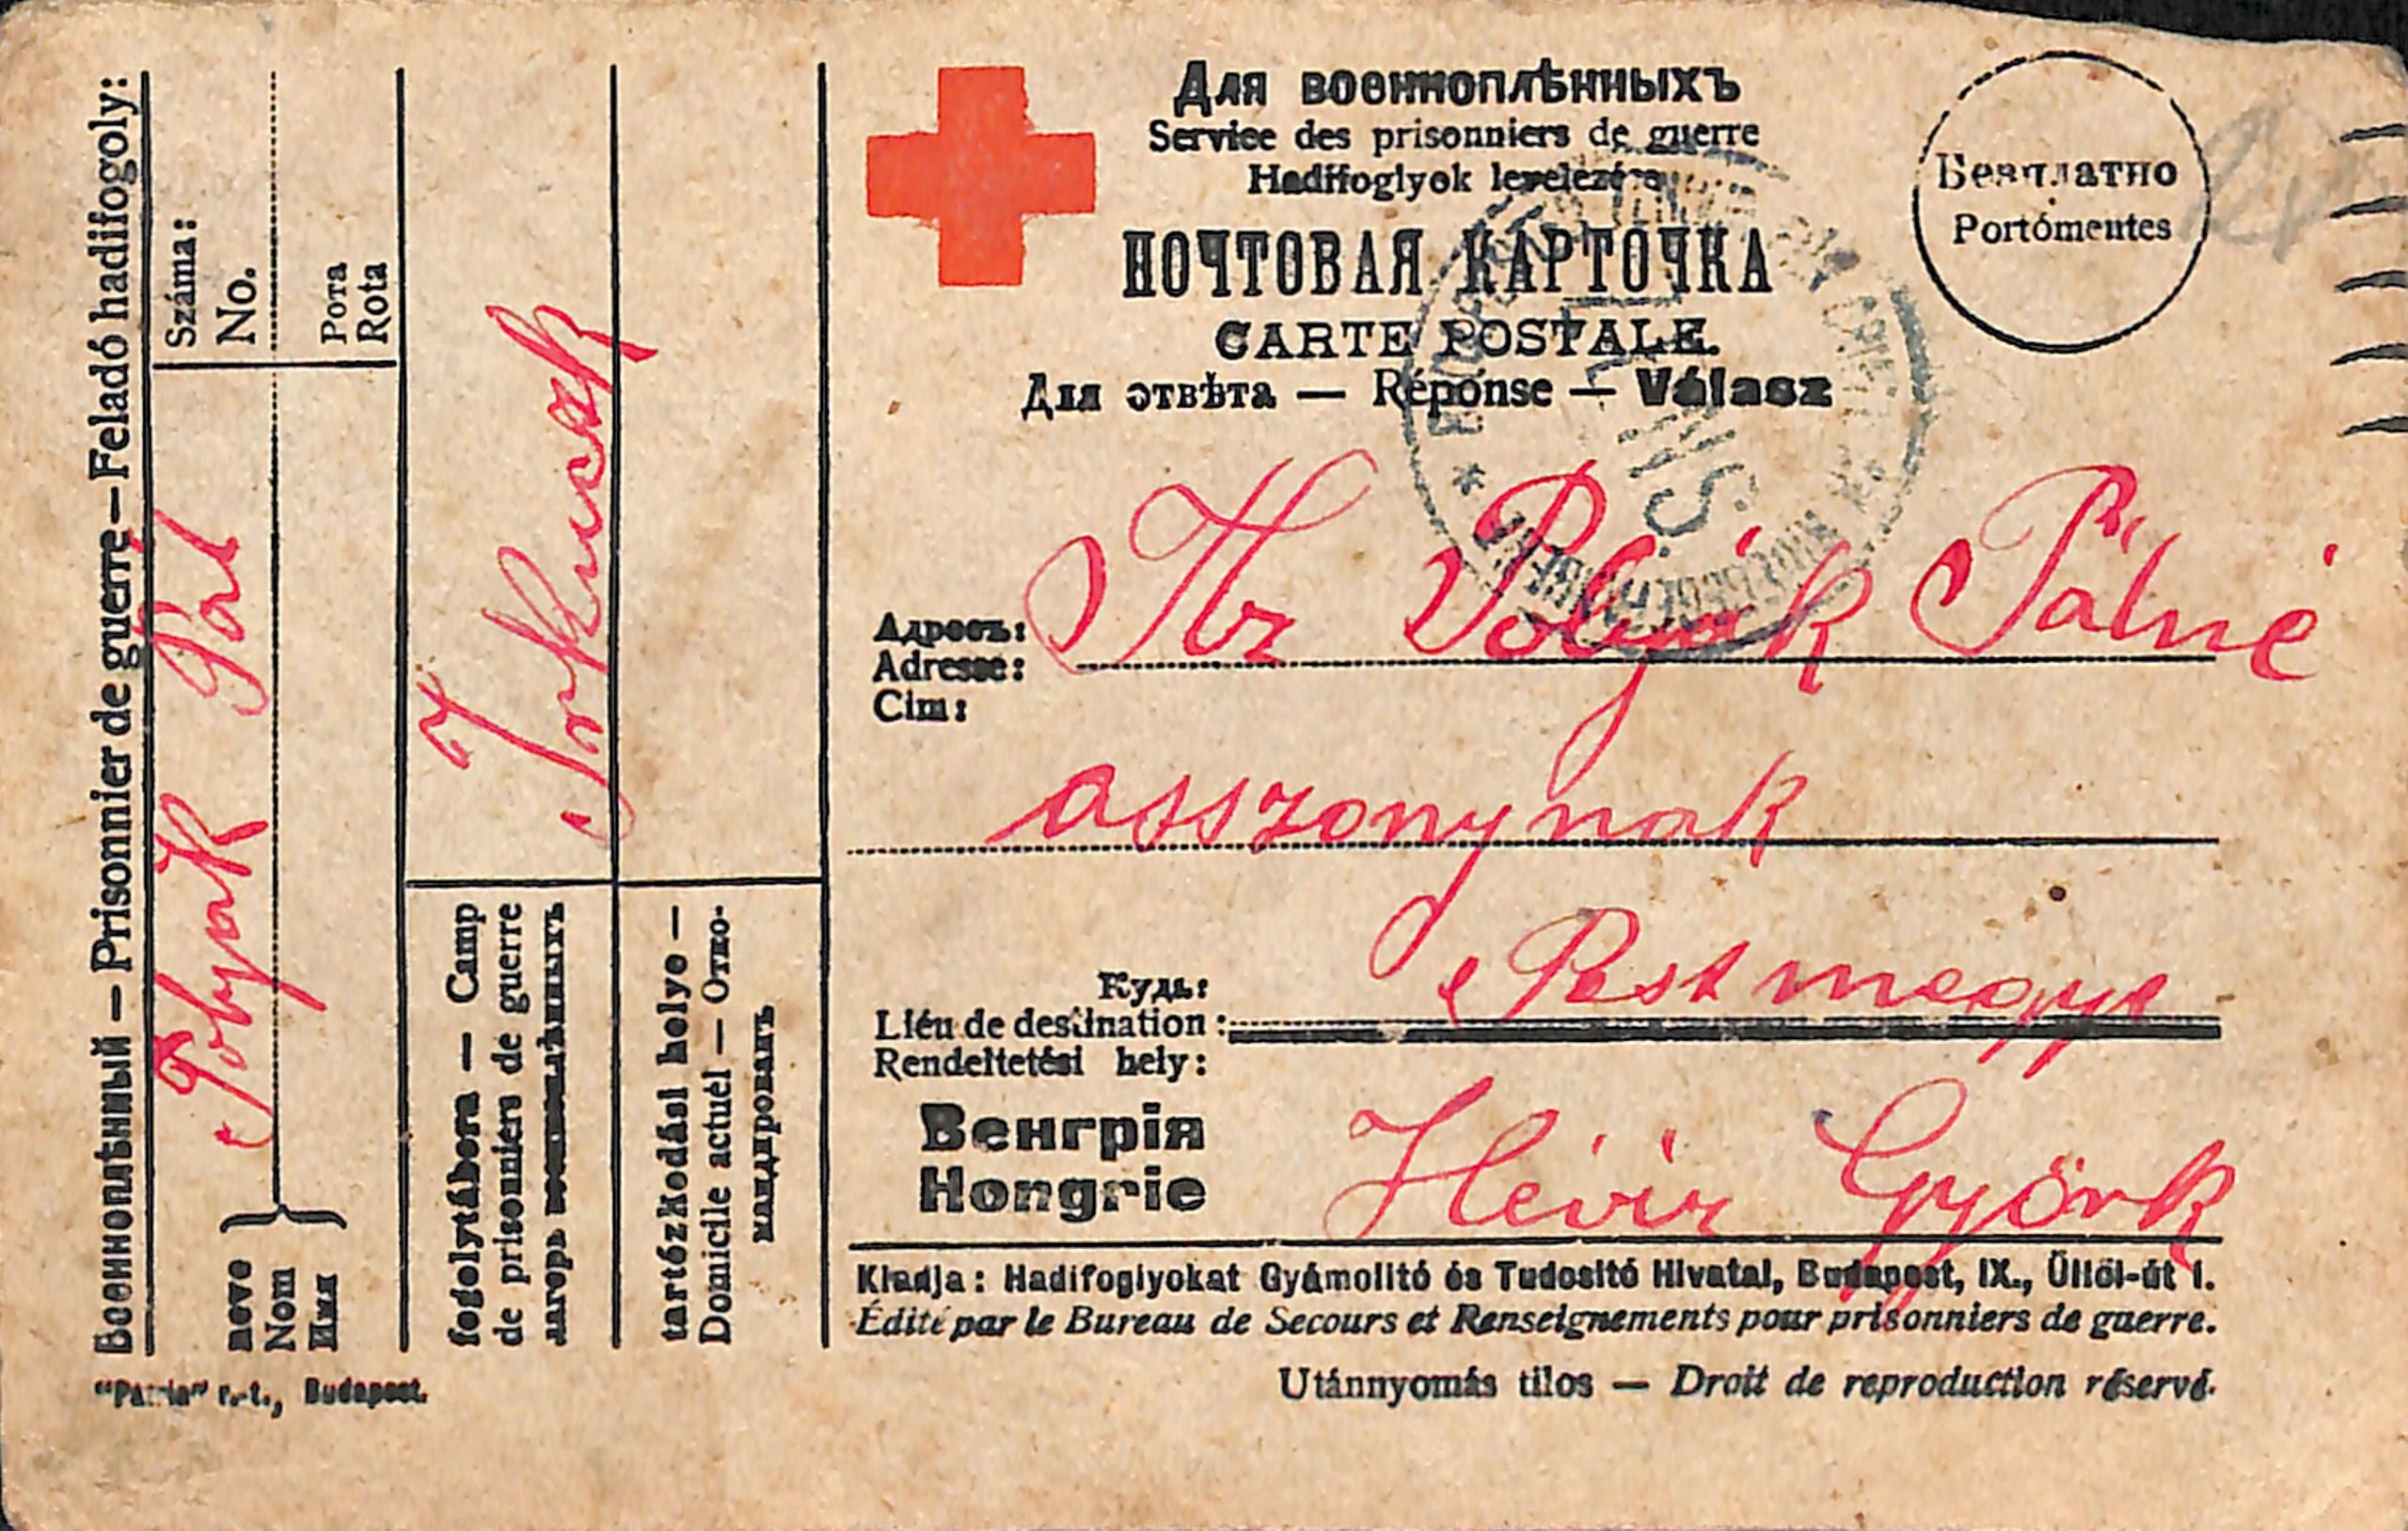 Военноплѣнный — Prisonnier de guerre — Feladó hadifogoly:
Száma:
No.
Рота
Rota
Polyák Pál
neve
Nom
Имя
Irkuczk
fogolytábora — Camp
de prisonniers de guerre
лагерь военноплѣнныхъ
tartózkodási helye —
Domicile actuel — Отко-
мандрованъ
"Patria" r.-t., Budapest.
Для военноплѣнныхъ
Service des prisonniers de guerre
Hadifoglyok levelezése
ПОЧТОВАЯ КАРТОЧКА
CARTE POSTALE.
Для отвѣта — Réponse — Válasz
Безплатно
Portómentes
Адресъ:
Adresse:
Cim:
Polyák Pálné
asszonynak
Куда:
Liéu de destination:
Rendeltetési hely:
Pestmegye
Венгрія
Hongrie
Hévíz Györk
Kiadja: Hadifoglyokat Gyámolitó és Tudositó Hivatal, Budapest, IX., Üllői-út 1.
Édité par le Bureau de Secours et Renseignements pour prisonniers de guerre.
Utánnyomás tilos — Droit de reproduction réservé.